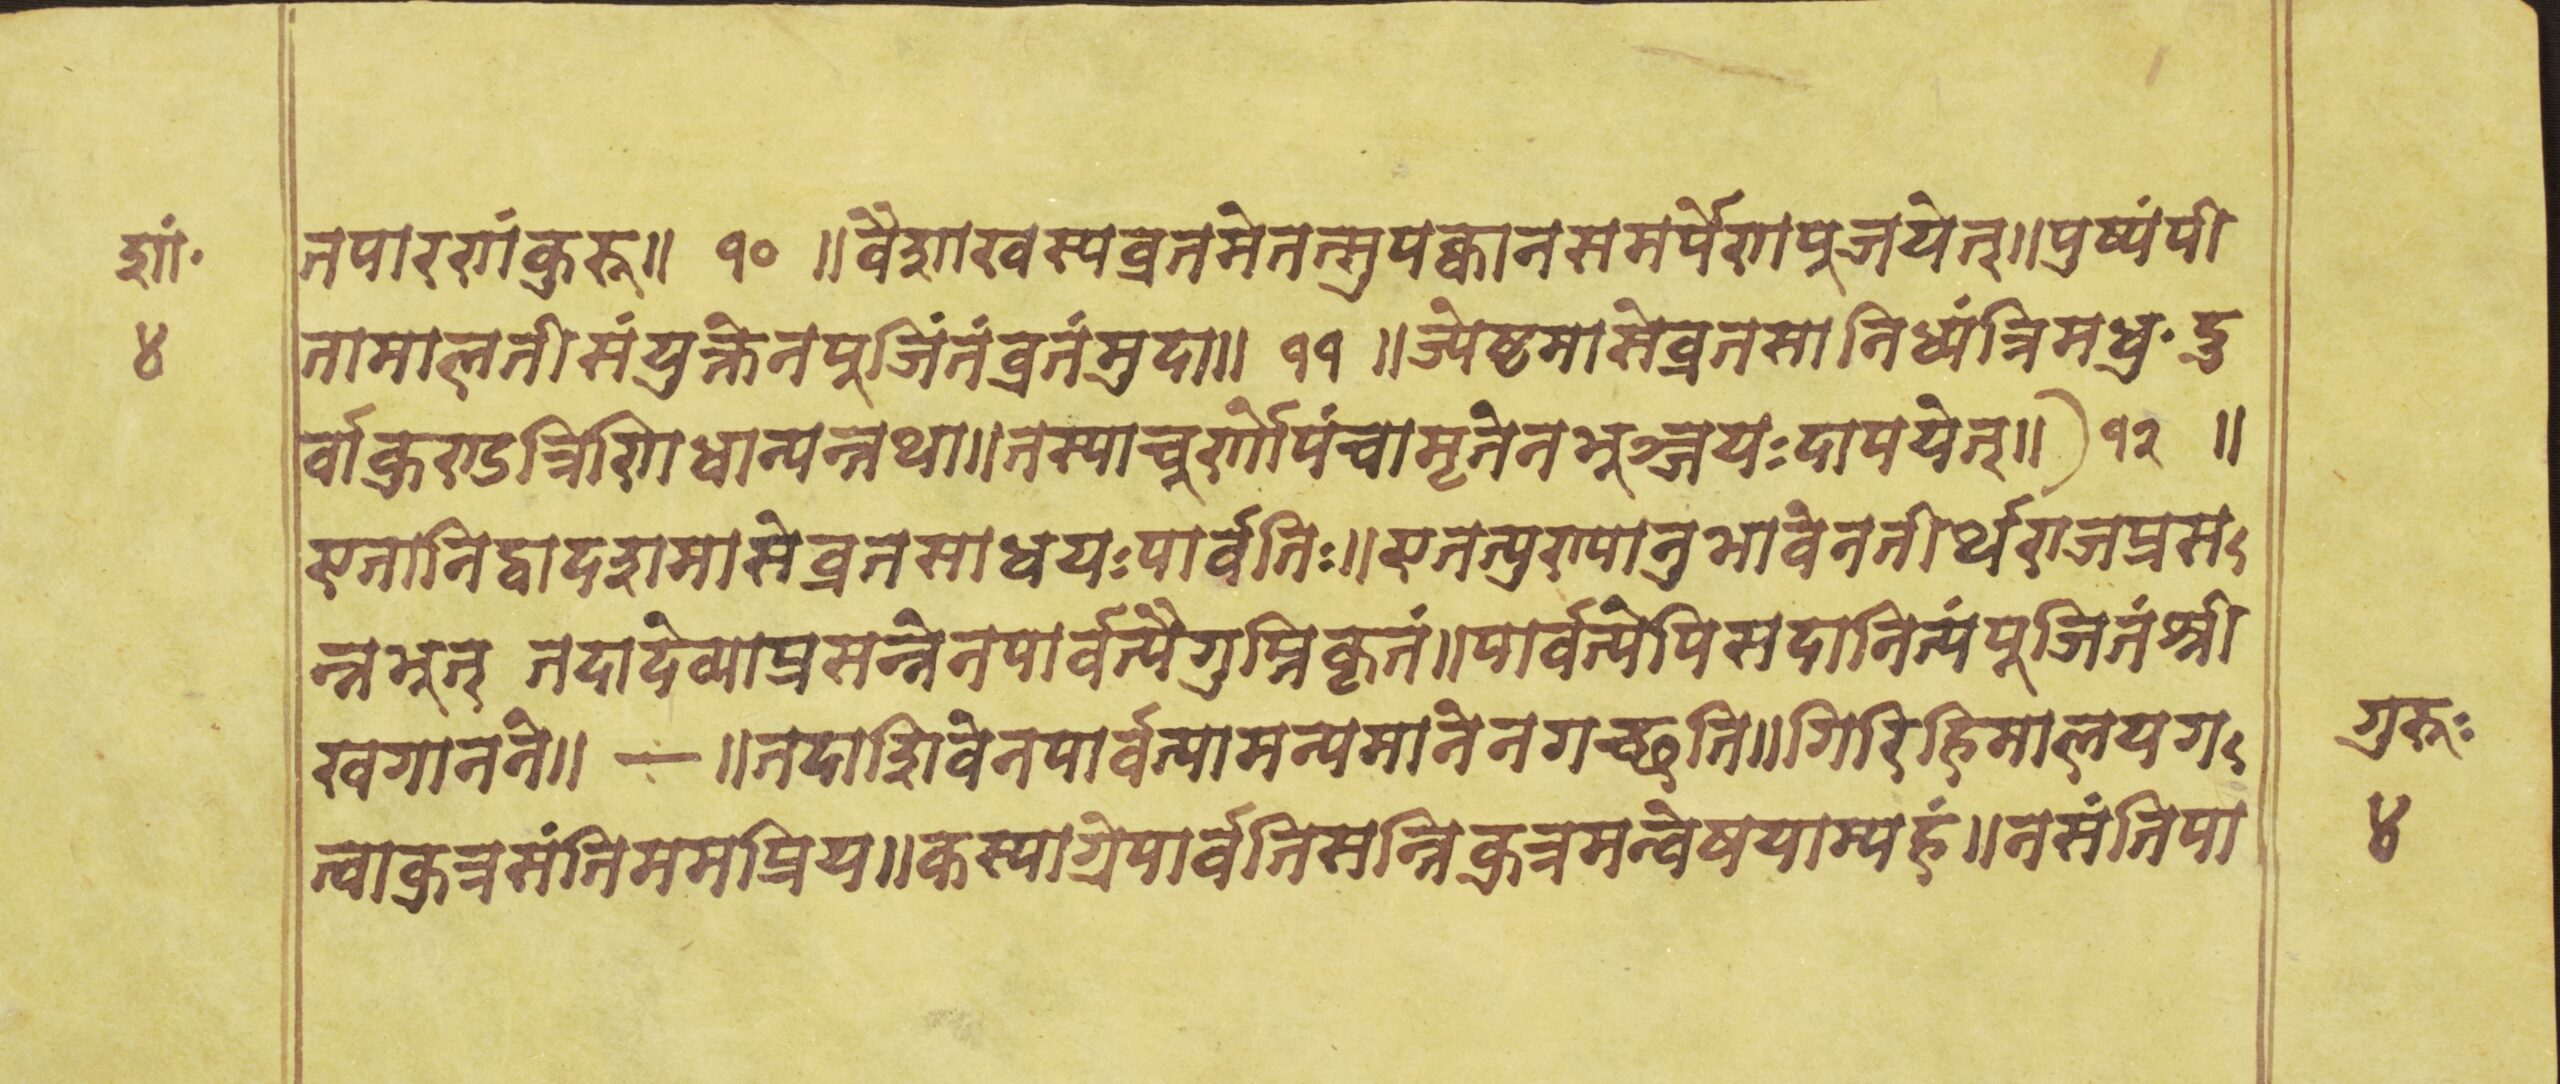 शां॰
४
तपारणंकुरू॥ १० ॥वैशाखस्यव्रतमेतत्सुपक्वानसमर्पेणपूजयेत्॥पुष्पंपी
तामालतीसंयुक्तेनपूजिंतंव्रतंमुदा॥ ११ ॥ज्येष्ठमासेव्रतसानिध्यंत्रिमधु॰दु
र्वाकुरण्डत्रिणिधान्यन्तथा॥तस्याचूर्णोपंचामृतेनभूञ्जयःदापयेत्॥ १२ ॥
एतानिद्वादशमासेव्रतसाधयःपार्वतिः॥एतत्पुण्यानुभावेनतीर्थराजप्रस
न्नभूत् तदादेव्याप्रसन्नेनपार्वत्यैगुप्तिकृतं॥पार्वत्येपिसदानित्यंपूजितंश्री
खगानने॥ — ॥तदाशिवेनपार्वत्यामन्यमानेनगच्छति॥गिरिहिमालयग
त्वाकुत्रमंतिममप्रिय॥कस्याग्रेपार्वतिसन्निकुत्रमन्वेषयाम्यहं॥नसंतिपा
गुरूः
४